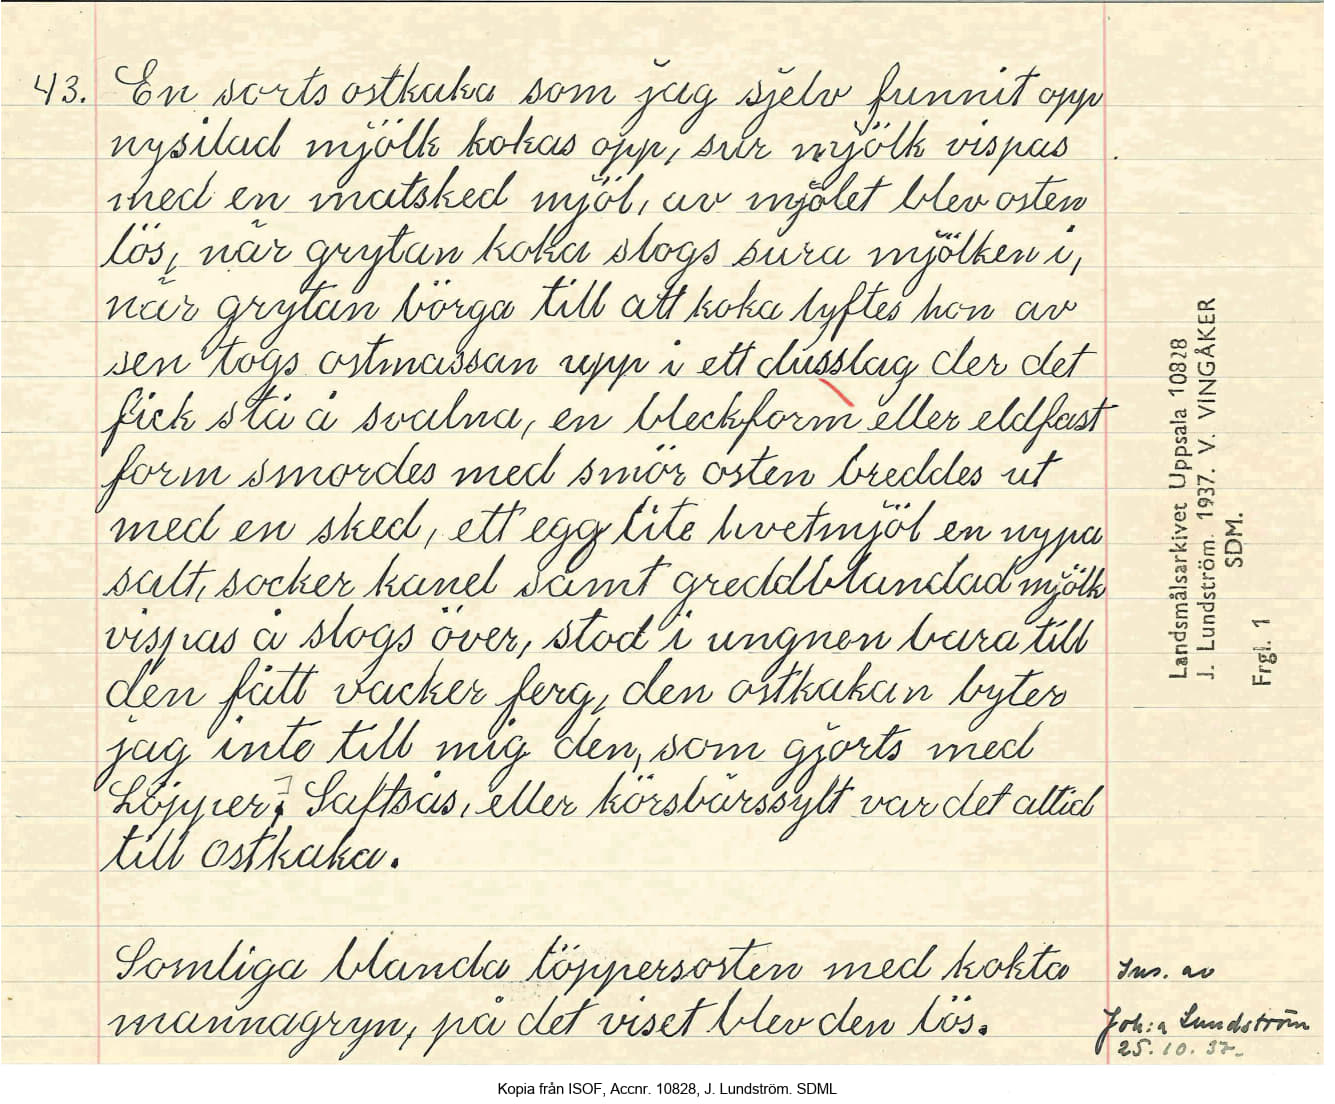 43. En sorts ostkaka som jag sjelv funnit opp
nysilad mjölk kokas opp, sur mjölk vispas
med en matsked mjöl, av mjölet blev osten
lös, när grytan koka slogs sura mjölken i,
når grytan börga till att koka lyftes hon av
sen togs ostmassan upp i ett dusslag der det
fick stå å svalna, en bleckform eller eldfast
form smordes med smör osten breddes ut
med en sked, ett egg lite hvetmjöl en nypa
salt, socker kanel samt greddblandad mjölk
vispas å slogs över, stod i ungnen bara till
den fått vacker ferg, den ostkakan byter
jag inte till mig den, som gjorts med
Löpper. Saftsås, eller körsbärssylt var det alltid
till ostkaka.
Somliga blanda löppersosten med kokta
mannagryn, på det viset blev den lös.
Ins. av
Joh:a Lundström
25.10.37.
Landsmålsarkivet Uppsala 10828
J. Lundström. 1937. V. VINGÅKER
SDM.
Frgl. 1
Kopia från ISOF, Accnr. 10828, J. Lundström. SDML